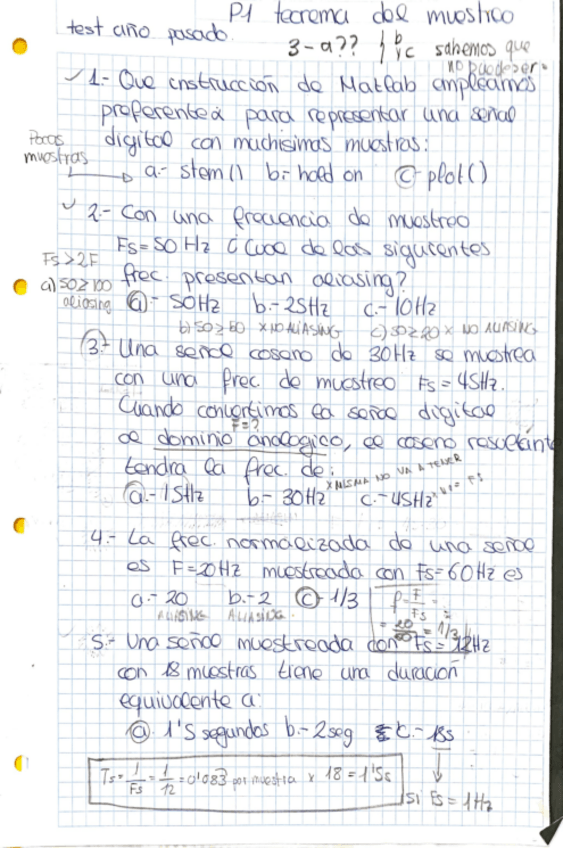 P1 teorema del muestreo
test año pasado.
3-a?? b y c sabemos que
no puede ser.
✓ 1.- Que instrucción de Matlab empleamos
preferente☒ para representar una señal
digital con muchisimas muestras:
Pocas
muestras
a.- stem() b.- hold on c- plot()
✓ 2.- Con una frecuencia de muestreo
Fs=50Hz ¿Cual de las siguientes
Fs>2F
frec. presentan aliasing?
a) 50≥100
aliasing
a- 50Hz b.- 25Hz c.- 10Hz
b) 50≥50 x NO ALIASING c) 50≥20 x NO ALIASING
3.- Una señal coseno de 30Hz se muestrea
con una frec. de muestreo Fs=45Hz.
Cuando convertimos la señal digital
F=?
al dominio analogico, el coseno resultante
tendra la frec. de:
x MISMA NO VA A TENER
a.- 15Hz b- 30Hz c.- 45Hz
4.- La frec. normalizada de una señal
es F=20Hz muestreada con Fs=60Hz es
a.- 20 b.- 2 c- 1/3
ALIASING ALIASING
f=F/Fs =
= 20/60 = 1/3
5.- Una señal muestreada con Fs=12Hz
con 18 muestras tiene una duración
equivalente a:
a. 1'5 segundos b.- 2seg c.- 18s
Ts=1/Fs=1/12=0'083 por muestra x 18 = 1'5s
si Fs=1Hz